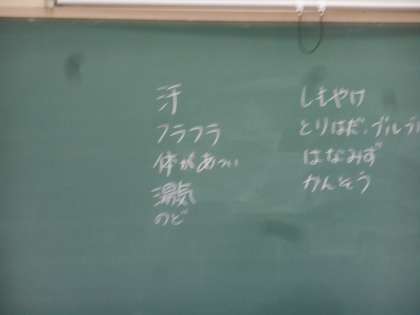 汗
フラフラ
体があつい
湯気
のど
しもやけ
とりはだ、ブルブル
はなみず
かんそう